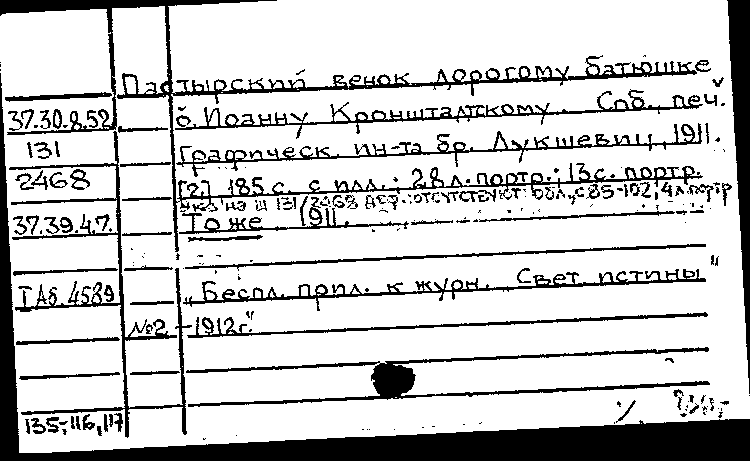 Пастырский венок дорогому батюшке
37.30.8.52 о. Иоанну Кронштадтскому. Спб., печ.
131 Графическ. ин-та бр. Лукшевиц, 1911.
2468 [2] 185 с. с илл.; 28 л. портр.; 13 с. портр.
Экз. на Ш 131/2468 деф.: отсутствуют: обл., с 85-102, 4 л. портр
37.39.4.7. То же 1911.
I Аб. 4589 „Беспл. прил. к журн. „Свет истины"
№2 -1912г."
135-116, 117